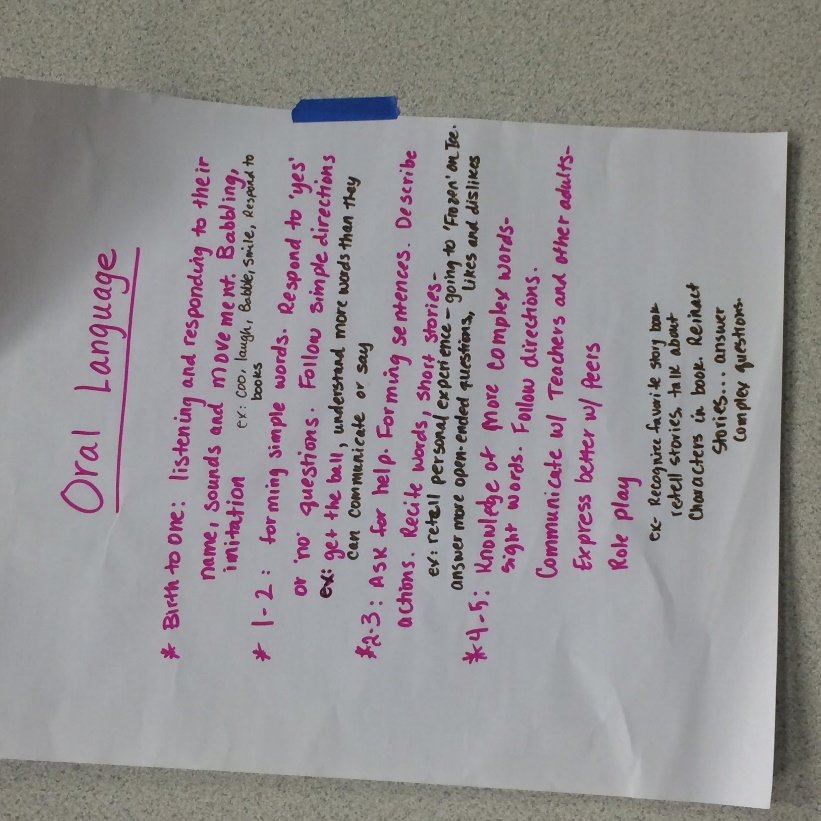 Oral Language
* Birth to one: listening and responding to their
name, sounds and movement. Babbling,
imitation
ex: coo, laugh, Babble, smile, Respond to
books
* 1-2: forming simple words. Respond to 'yes'
or 'no' questions. Follow simple directions
ex: get the ball, understand more words than they
can communicate or say
*2-3: Ask for help. Forming sentences. Describe
actions. Recite words, short stories-
ex: retell personal experience - going to 'Frozen' on Ice.
answer more open-ended questions, likes and dislikes
*4-5: Knowledge of more complex words-
sight words. Follow directions.
Communicate w/ Teachers and other adults-
Express better w/ Peers
Role play
ex- Recognize favorite story book
retell stories, talk about
Characters in book. Reinact
stories... answer
complex questions.